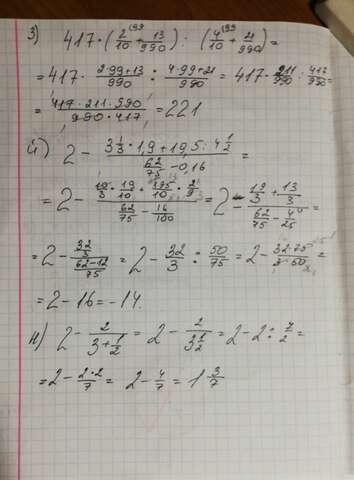 з) 417·(2/10 + 13/990) : (4/10 + 21/990) =
= 417 · (2·99+13)/990 : (4·99+21)/990 = 417 · 211/990 : 417/990 =
= (417·211·990)/(990·417) = 221
и) 2 - (3 1/3 · 1,9 + 19,5 : 4 1/2)/(62/75 - 0,16) =
= 2 - (10/3 · 19/10 + 195/10 · 2/9)/(62/75 - 16/100) = 2 - (19/3 + 13/3)/(62/75 - 4/25) =
= 2 - (32/3)/((62-12)/75) = 2 - 32/3 : 50/75 = 2 - (32·75)/(3·50) =
= 2 - 16 = -14.
к) 2 - 2/(3 + 1/2) = 2 - 2/(3 1/2) = 2 - 2 : 7/2 =
= 2 - (2·2)/7 = 2 - 4/7 = 1 3/7